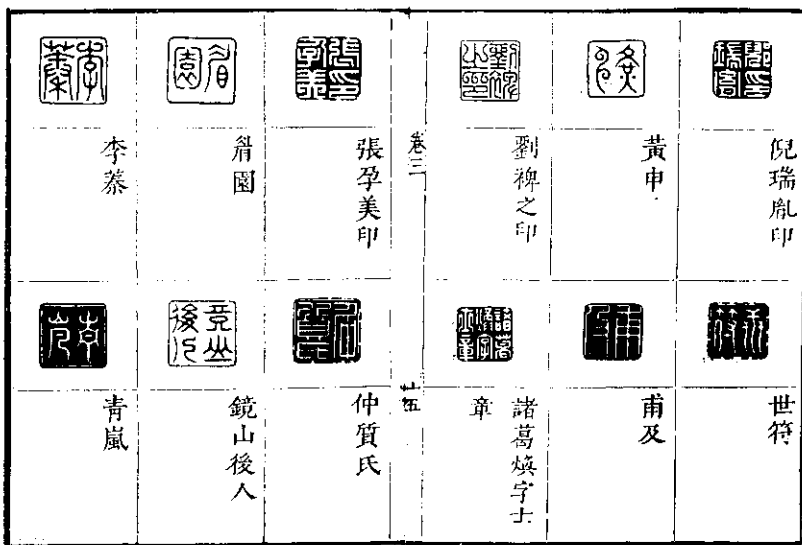 倪瑞胤印
黃申
劉裨之印
世符
甫及
諸葛煥字士
章
卷三
廿五
張孕美印
眉園
李蓁
仲質氏
鏡山後人
青嵐